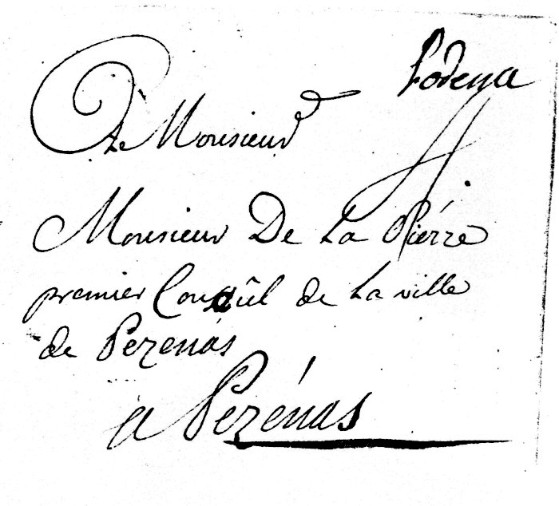 Lodeua
A Monsieur
4.
Monsieur De La Piérre
premier Consûl de La ville
de Pezenas
a Pezénas